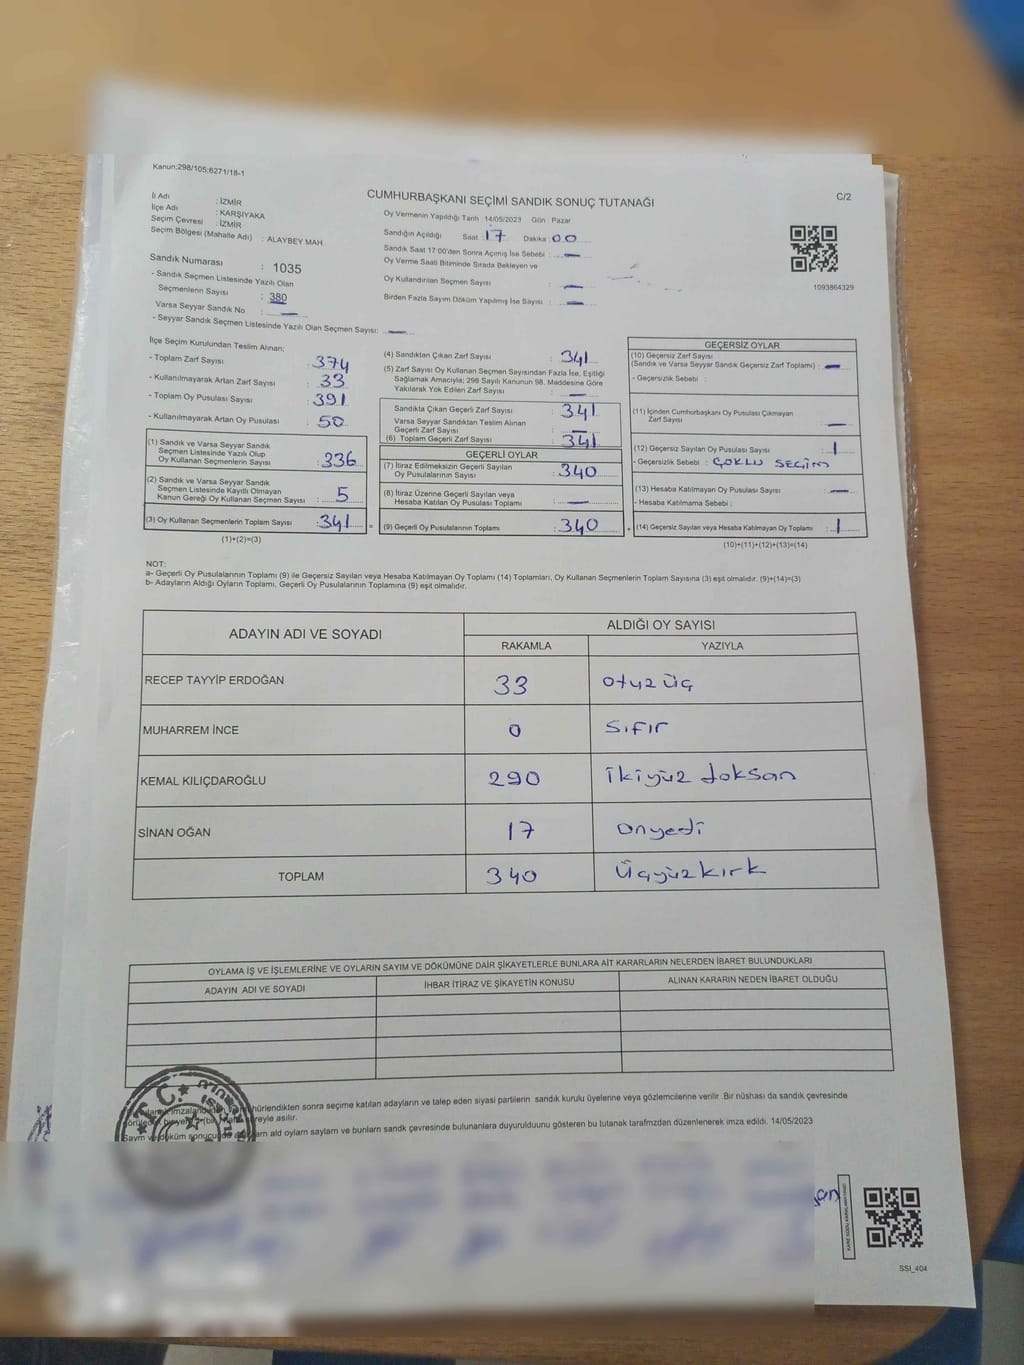 Kanun:298/105;6271/18-1
CUMHURBAŞKANI SEÇİMİ SANDIK SONUÇ TUTANAĞI
C/2
İl Adı : İZMİR
İlçe Adı : KARŞIYAKA
Seçim Çevresi : İZMİR
Seçim Bölgesi (Mahalle Adı) : ALAYBEY MAH
Sandık Numarası : 1035
- Sandık Seçmen Listesinde Yazılı Olan
Seçmenlerin Sayısı : 380
Varsa Seyyar Sandık No : —
- Seyyar Sandık Seçmen Listesinde Yazılı Olan Seçmen Sayısı: —
Oy Vermenin Yapıldığı Tarih : 14/05/2023 Gün : Pazar
Sandığın Açıldığı Saat : 17 Dakika : 00
Sandık Saat 17:00'den Sonra Açımış İse Sebebi : —
Oy Verme Saati Bitiminde Sırada Bekleyen ve
Oy Kullandırılan Seçmen Sayısı : —
Birden Fazla Sayım Döküm Yapılmış İse Sayısı : —
1093864329
İlçe Seçim Kurulundan Teslim Alınan;
- Toplam Zarf Sayısı : 374
- Kullanılmayarak Artan Zarf Sayısı : 33
- Toplam Oy Pusulası Sayısı : 391
- Kullanılmayarak Artan Oy Pusulası : 50
(1) Sandık ve Varsa Seyyar Sandık
Seçmen Listesinde Yazılı Olup
Oy Kullanan Seçmenlerin Sayısı : 336
(2) Sandık ve Varsa Seyyar Sandık
Seçmen Listesinde Kayıtlı Olmayan
Kanun Gereği Oy Kullanan Seçmen Sayısı : 5
(3) Oy Kullanan Seçmenlerin Toplam Sayısı : 341 =
(1)+(2)=(3)
(4) Sandıktan Çıkan Zarf Sayısı : 341
(5) Zarf Sayısı Oy Kullanan Seçmen Sayısından Fazla İse, Eşitliği
Sağlamak Amacıyla; 298 Sayılı Kanunun 98. Maddesine Göre
Yakılarak Yok Edilen Zarf Sayısı : —
Sandıkta Çıkan Geçerli Zarf Sayısı : 341
Varsa Seyyar Sandıktan Teslim Alınan
Geçerli Zarf Sayısı : —
(6) Toplam Geçerli Zarf Sayısı : 341
GEÇERLİ OYLAR
(7) İtiraz Edilmeksizin Geçerli Sayılan
Oy Pusulalarının Sayısı : 340
(8) İtiraz Üzerine Geçerli Sayılan veya
Hesaba Katılan Oy Pusulası Toplamı : —
(9) Geçerli Oy Pusulalarının Toplamı : 340 +
GEÇERSİZ OYLAR
(10) Geçersiz Zarf Sayısı
(Sandık ve Varsa Seyyar Sandık Geçersiz Zarf Toplamı) : —
- Geçersizlik Sebebi :
(11) İçinden Cumhurbaşkanı Oy Pusulası Çıkmayan
Zarf Sayısı : —
(12) Geçersiz Sayılan Oy Pusulası Sayısı : 1
- Geçersizlik Sebebi : ÇOKLU SEÇİM
(13) Hesaba Katılmayan Oy Pusulası Sayısı : —
- Hesaba Katılmama Sebebi :
(14) Geçersiz Sayılan veya Hesaba Katılmayan Oy Toplamı : 1
(10)+(11)+(12)+(13)=(14)
NOT:
a- Geçerli Oy Pusulalarının Toplamı (9) ile Geçersiz Sayılan veya Hesaba Katılmayan Oy Toplamı (14) Toplamları, Oy Kullanan Seçmenlerin Toplam Sayısına (3) eşit olmalıdır. (9)+(14)=(3)
b- Adayların Aldığı Oyların Toplamı, Geçerli Oy Pusulalarının Toplamına (9) eşit olmalıdır.
ADAYIN ADI VE SOYADI ALDIĞI OY SAYISI
RAKAMLA YAZIYLA
RECEP TAYYİP ERDOĞAN 33 otuz üç
MUHARREM İNCE 0 sıfır
KEMAL KILIÇDAROĞLU 290 ikiyüz doksan
SİNAN OĞAN 17 onyedi
TOPLAM 340 üçyüzkırk
OYLAMA İŞ VE İŞLEMLERİNE VE OYLARIN SAYIM VE DÖKÜMÜNE DAİR ŞİKAYETLERLE BUNLARA AİT KARARLARIN NELERDEN İBARET BULUNDUKLARI
ADAYIN ADI VE SOYADI İHBAR İTİRAZ VE ŞİKAYETİN KONUSU ALINAN KARARIN NEDEN İBARET OLDUĞU
sonra seçime katılan adayların ve talep eden siyasi partilerin sandık kurulu üyelerine veya gözlemcilerine verilir .Bir nüshası da sandık çevresinde
asılır.
ald oyların sayların ve bunların sandk çevresinde bulunanlara duyurulduunu gösteren bu tutanak tarafmzdan düzenlenerek imza edildi. 14/05/2023
T.C.
SSI_404